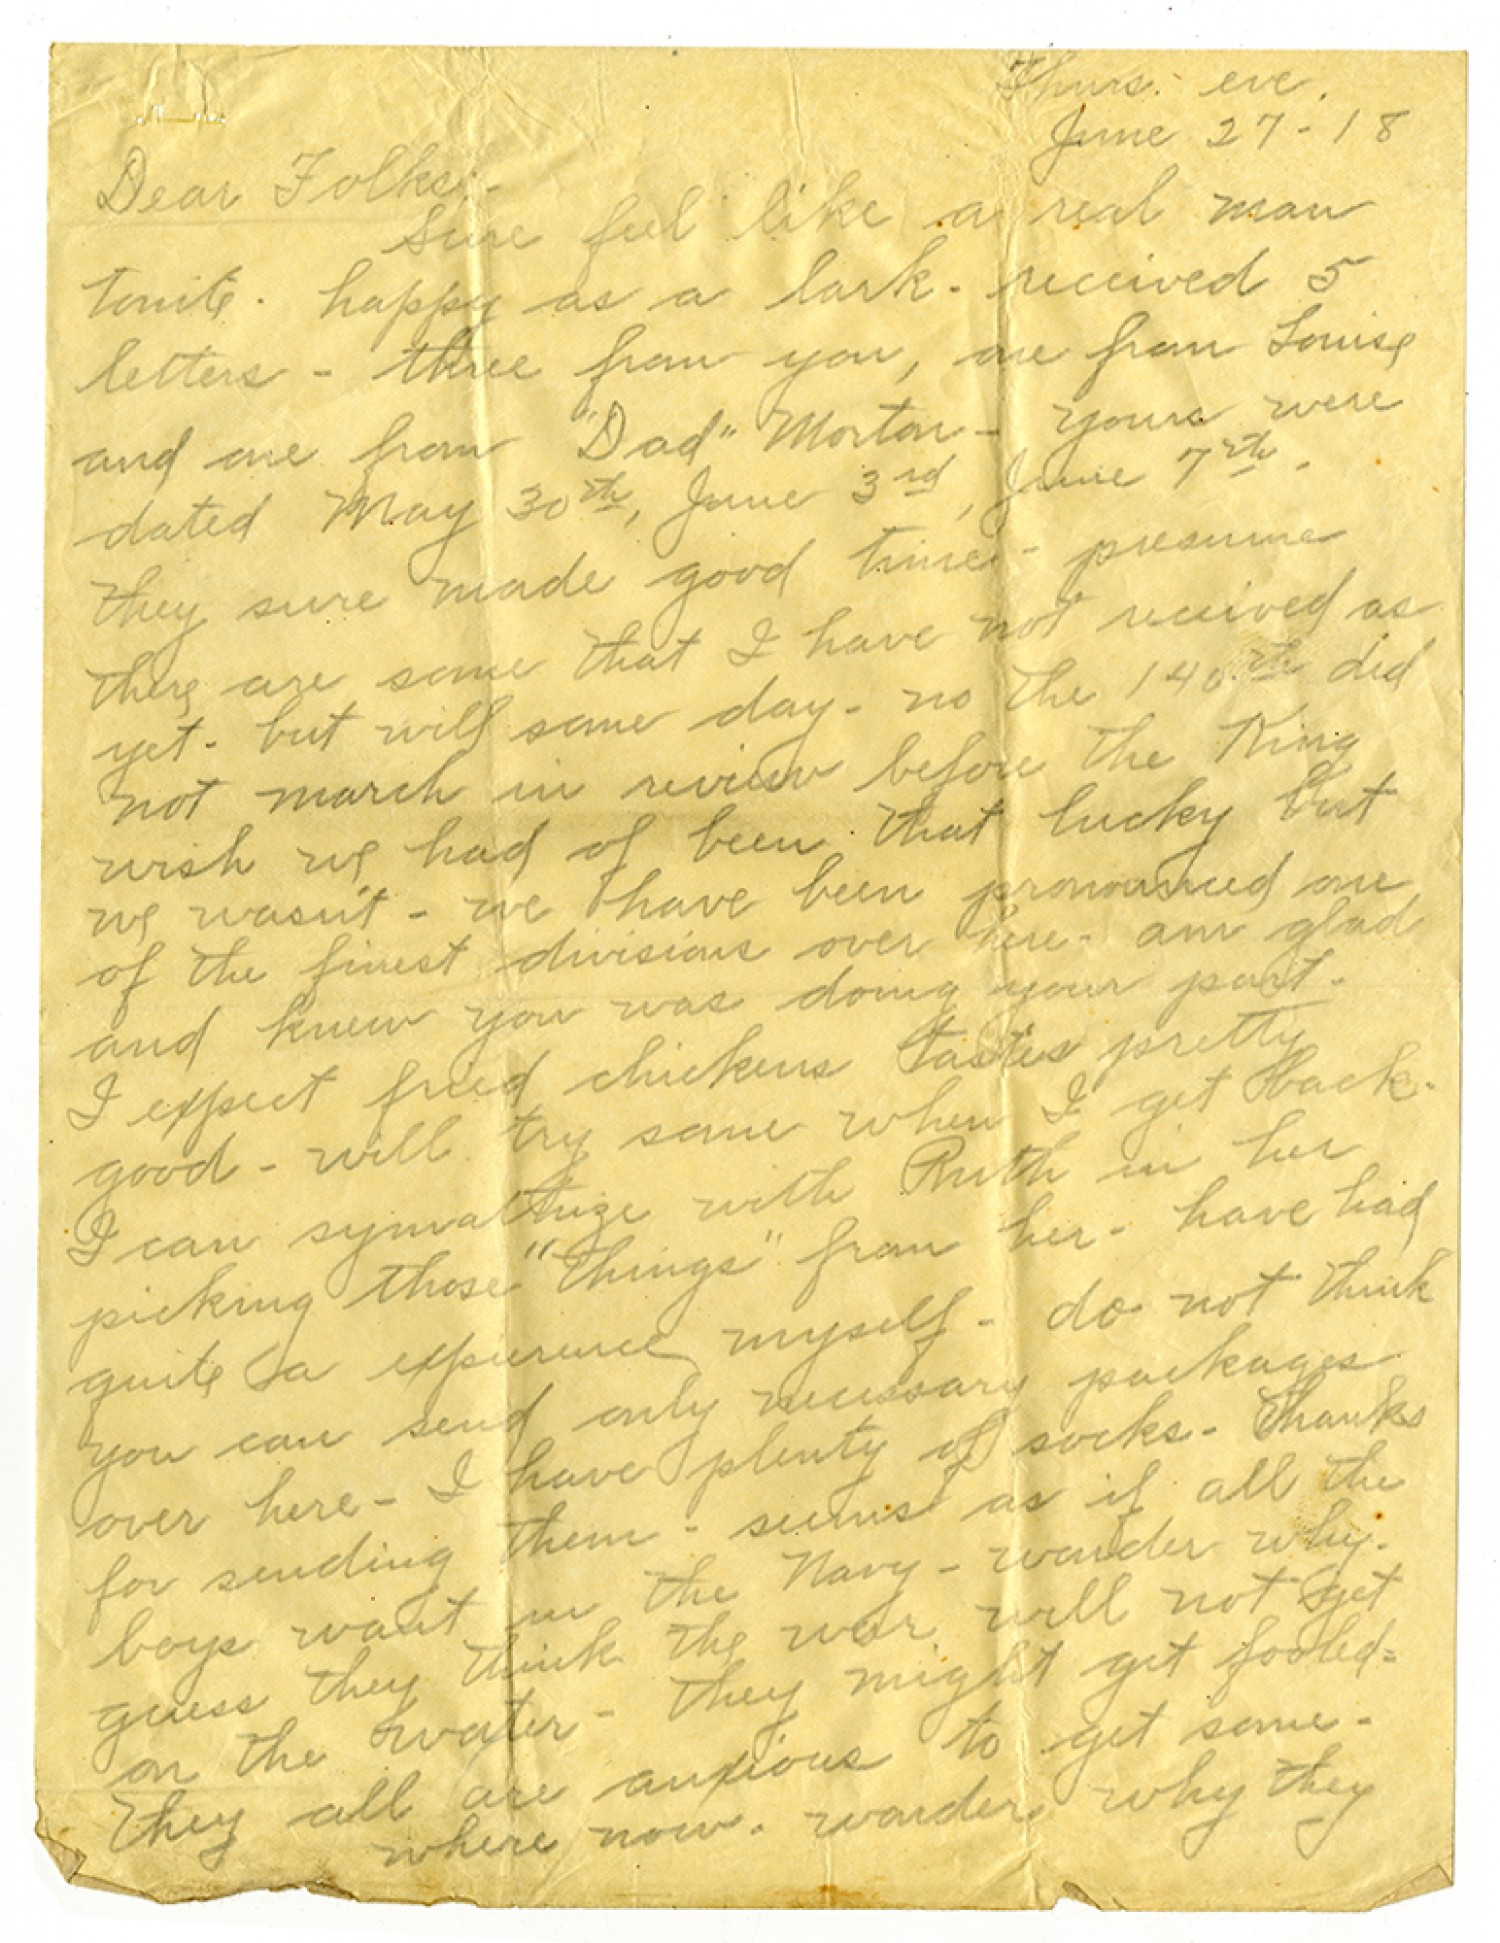 Thurs. eve.
June 27-18
Dear Folks:-
Sure feel like a real man
tonite. happy as a lark. received 5
letters - three from you, one from Louise
and one from "Dad" Morton - yours were
dated May 30th, June 3rd, June 7th.
they sure made good time - presume
there are some that I have not received as
yet - but will some day - no the 140th did
not march in review before the King
wish we had of been that lucky but
we wasn't - we have been pronounced one
of the finest divisions over here - am glad
and knew you was doing your part.
I expect fried chickens tastes pretty
good - will try some when I get back.
I can symathize with Ruth in her
picking those "things" from her - have had
quite a experience myself - do not think
you can send only necessary packages
over here - I have plenty of socks - Thanks
for sending them - seems as if all the
boys want in the Navy - wonder why.
guess they think the war will not get
on the water - they might get fooled -
They all are anxious to get some-
where now. wonder why they